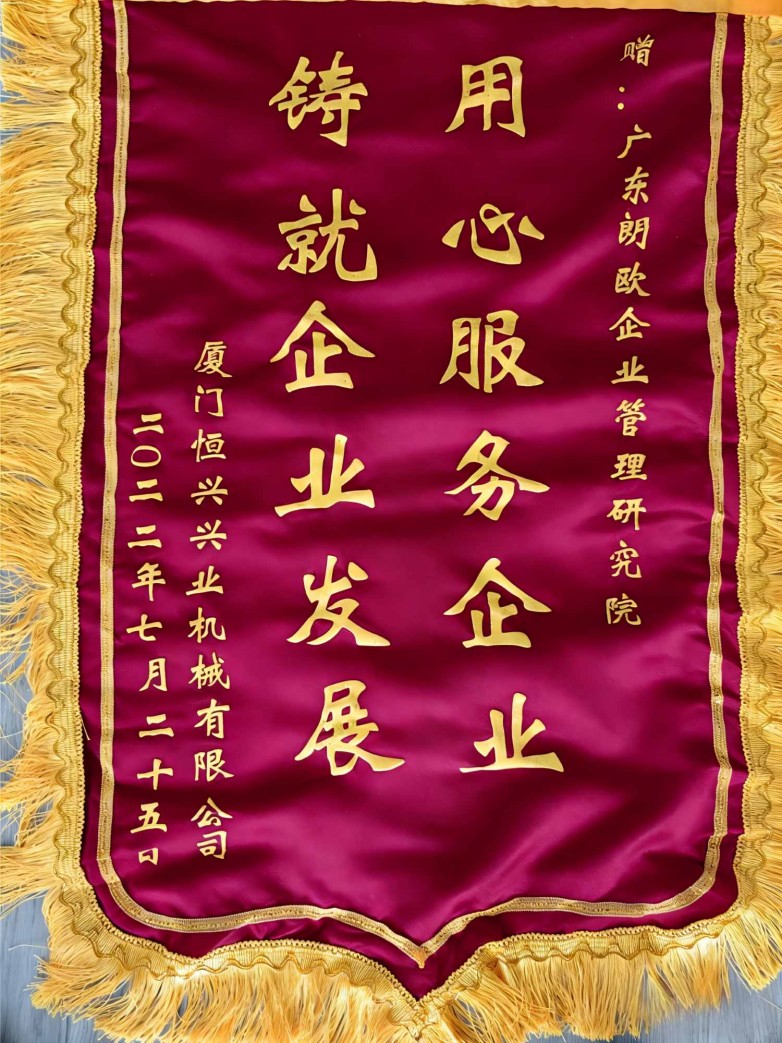 赠：广东朗欧企业管理研究院
用心服务企业
铸就企业发展
厦门恒兴兴业机械有限公司
二〇二二年七月二十五日